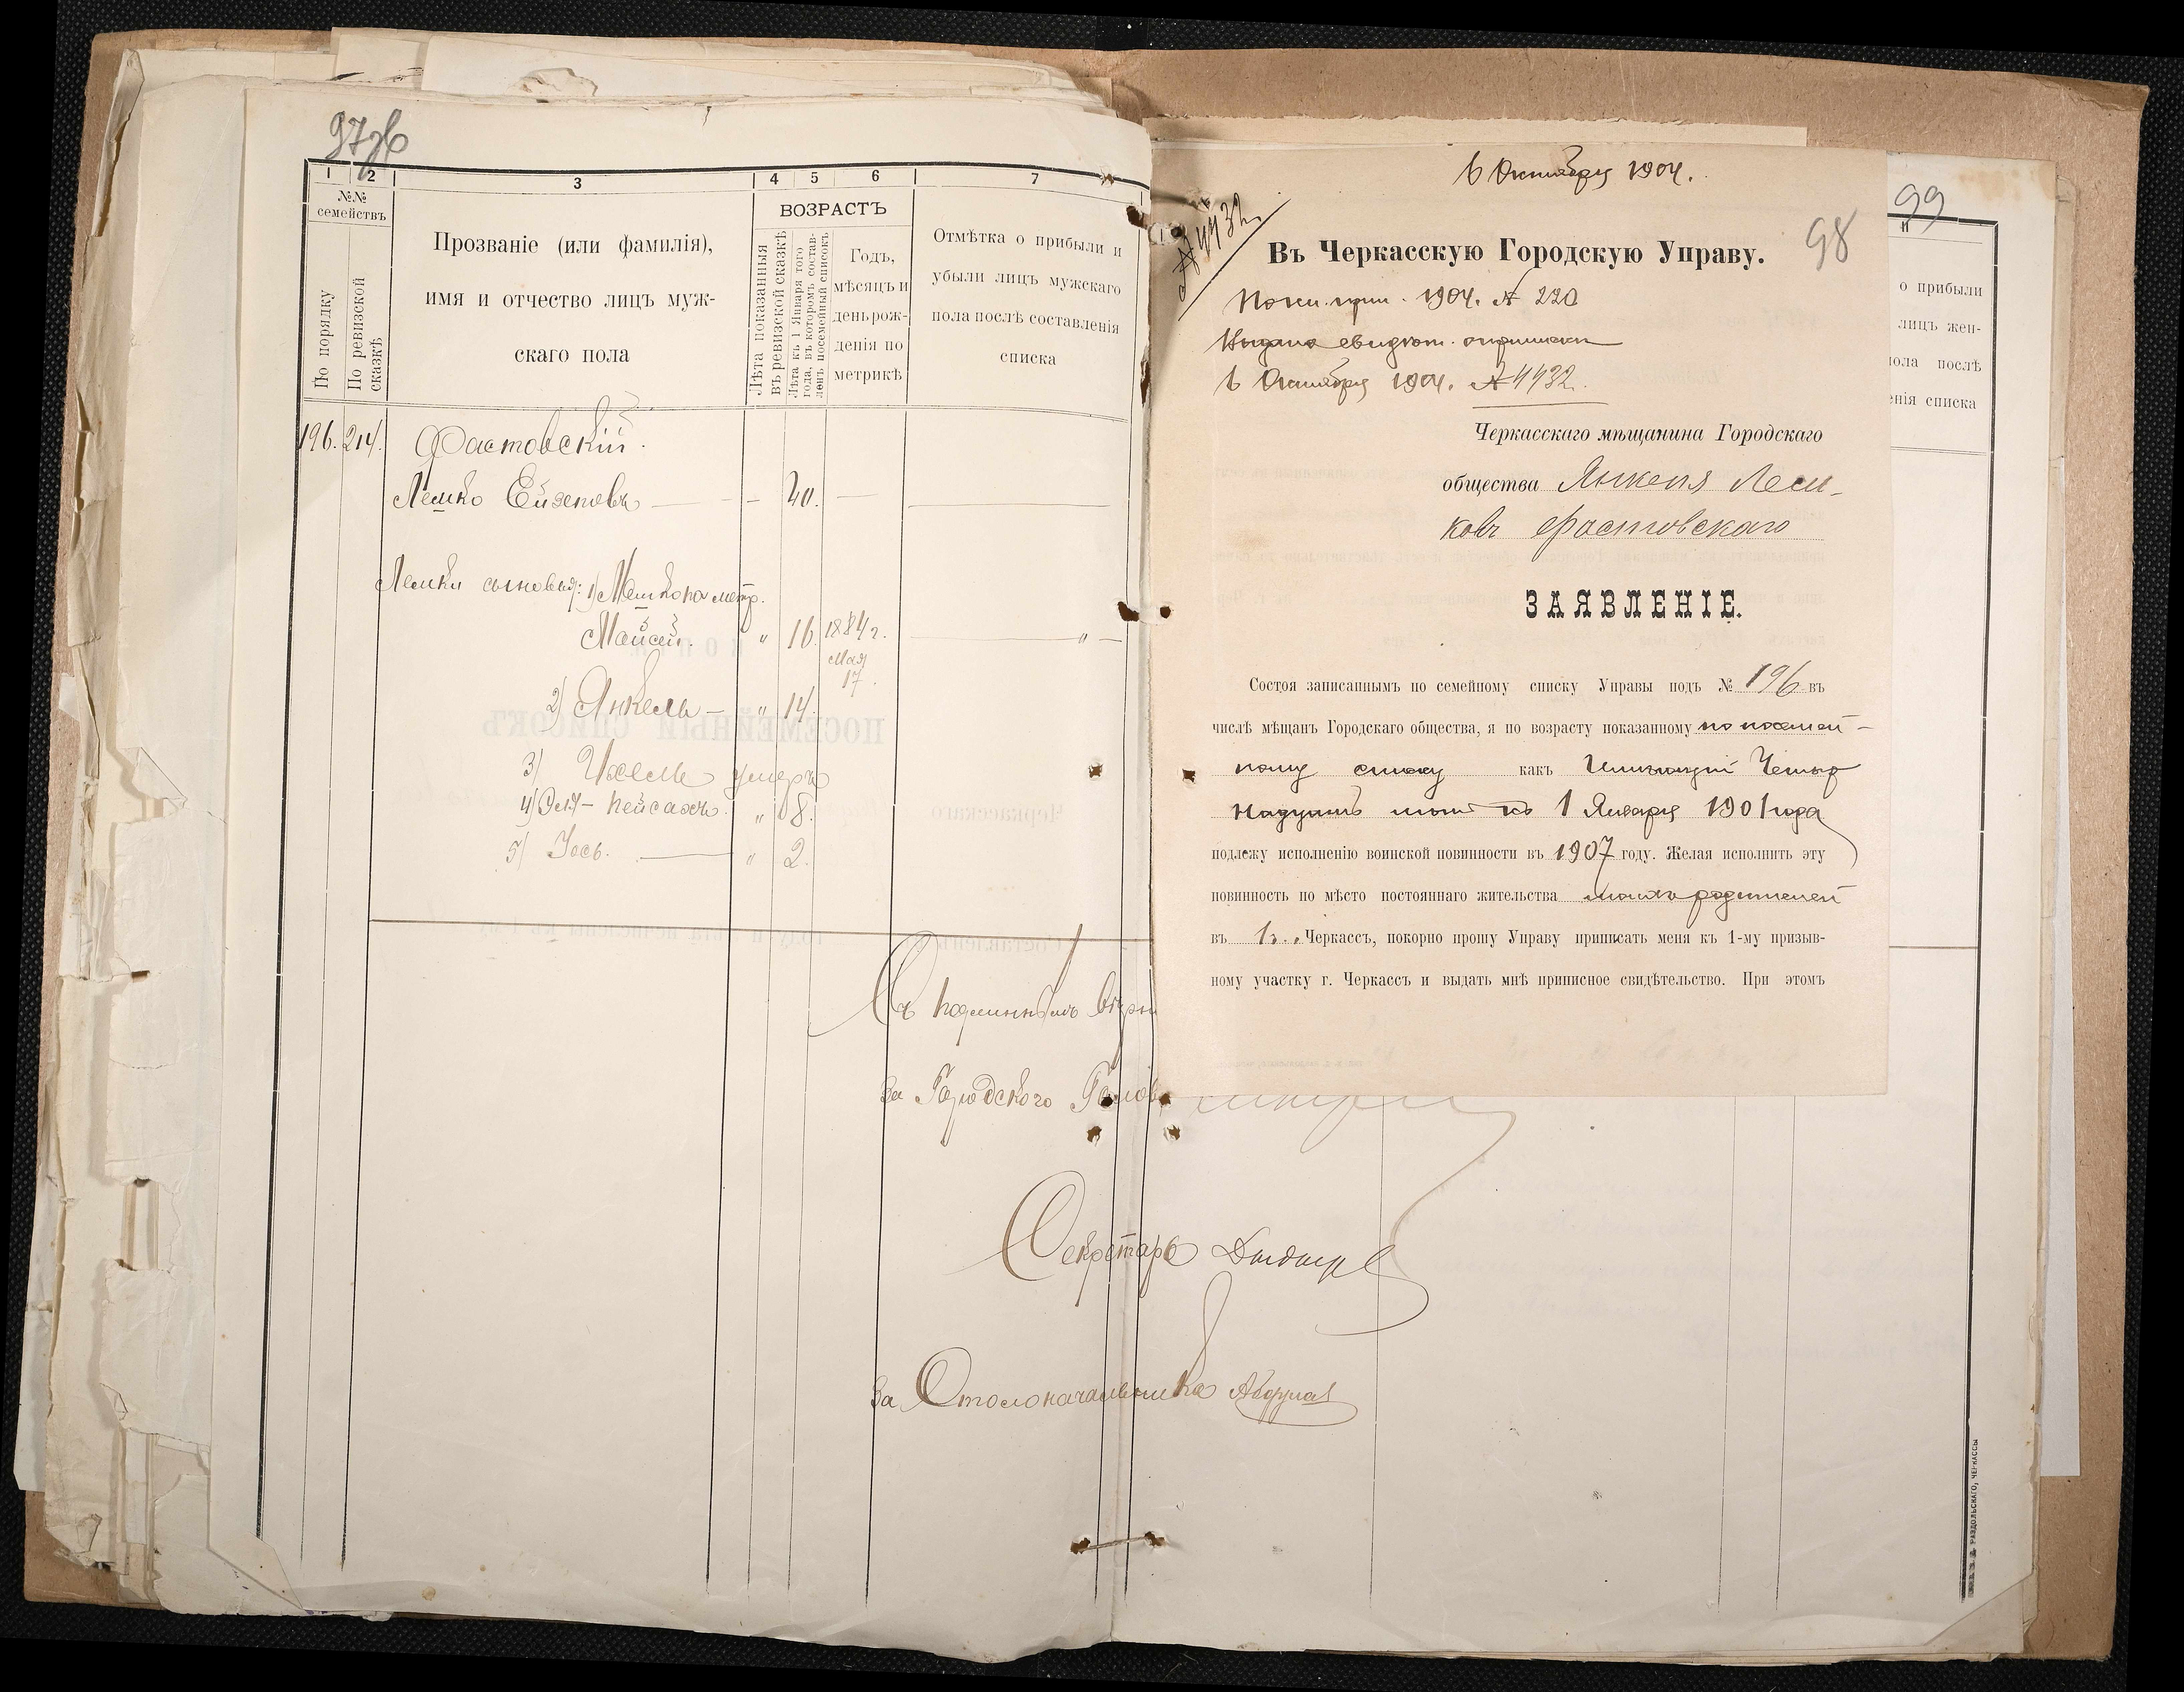 97об
1 2 3 4 5 6 7
№№ семействъ
По порядку
По ревизской сказкѣ
Прозваніе (или фамилія),
имя и отчество лицъ муж-
скаго пола
ВОЗРАСТЪ
Лѣта показанныя въ ревизской сказкѣ
Лѣта къ 1 Января того года, въ которомъ состав-ленъ посемейный списокъ
Годъ,
мѣсяцъ и
день рож-
денія по
метрикѣ
Отмѣтка о прибыли и
убыли лицъ мужскаго
пола послѣ составленія
списка
196. 214. Фастовскій.
Лешко Ейзеповъ — 40. —
Лешки сыновья: 1) Мошко по метр.
Мойсей. " 16. 1884 г. "
Мая
17.
2) Янкель — " 14.
3) Ихель умеръ
4) Эля-Пейсахъ. " 8.
5) Іось. — " 2.
Съ подлиннымъ вѣрн
За Городского Голов
Секретарь
За Столоначальника
6 Октября 1904.
№ 4432
98
Въ Черкасскую Городскую Управу.
1904. № 220
Выдано свидѣт. о припискѣ
6 Октября 1904. № 4432.
Черкасскаго мѣщанина Городскаго
общества Янкеля Леш-
ковъ Фастовскаго
ЗАЯВЛЕНІЕ.
Состоя записаннымъ по семейному списку Управы подъ № 196 въ
числѣ мѣщанъ Городскаго общества, я по возрасту показанному по посемей-
ному списку какъ имѣющій Четыр
надцать лѣтъ къ 1 Января 1901 года
подлежу исполненію воинской повинности въ 1907 году. Желая исполнить эту
повинность по мѣсто постояннаго жительства моихъ родителей
въ г. Черкассъ, покорно прошу Управу приписать меня къ 1-му призыв-
ному участку г. Черкассъ и выдать мнѣ приписное свидѣтельство. При этомъ
99
11
о прибыли
лицъ жен-
пола послѣ
енія списка
РАЗДОЛЬСКАГО, ЧЕРКАССЫ